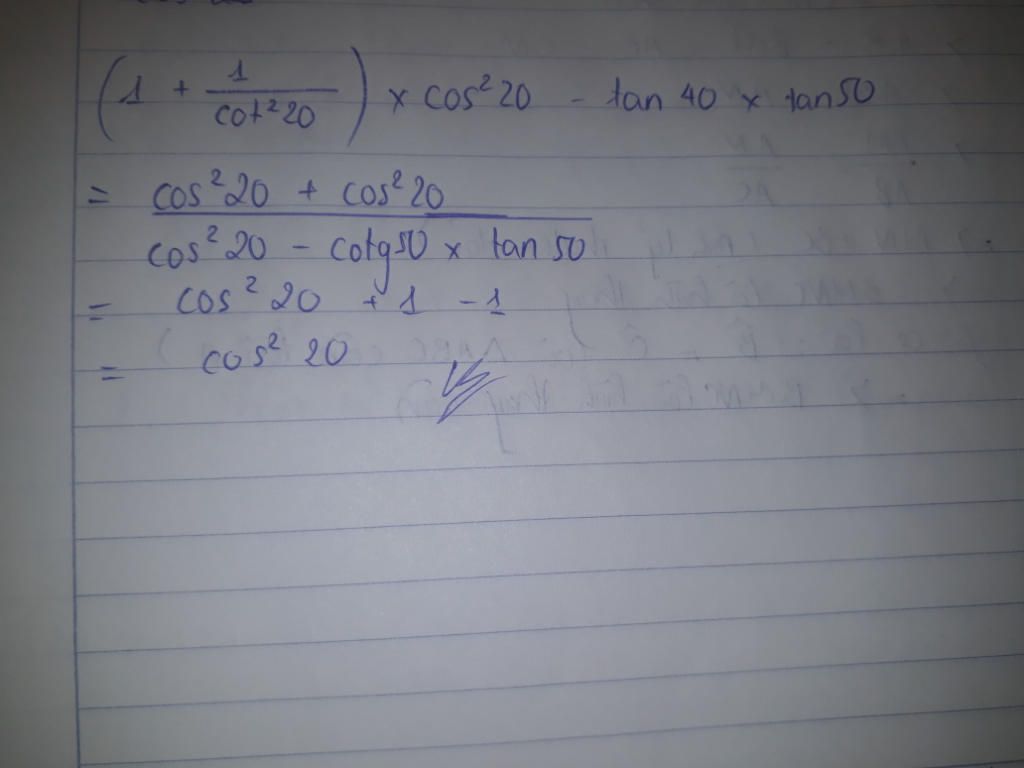 (1 + 1/cot²20) × cos²20 - tan 40 × tan50
= cos²20 + cos²20
cos²20 - cotg50 × tan 50
= cos²20 + 1 - 1
= cos²20